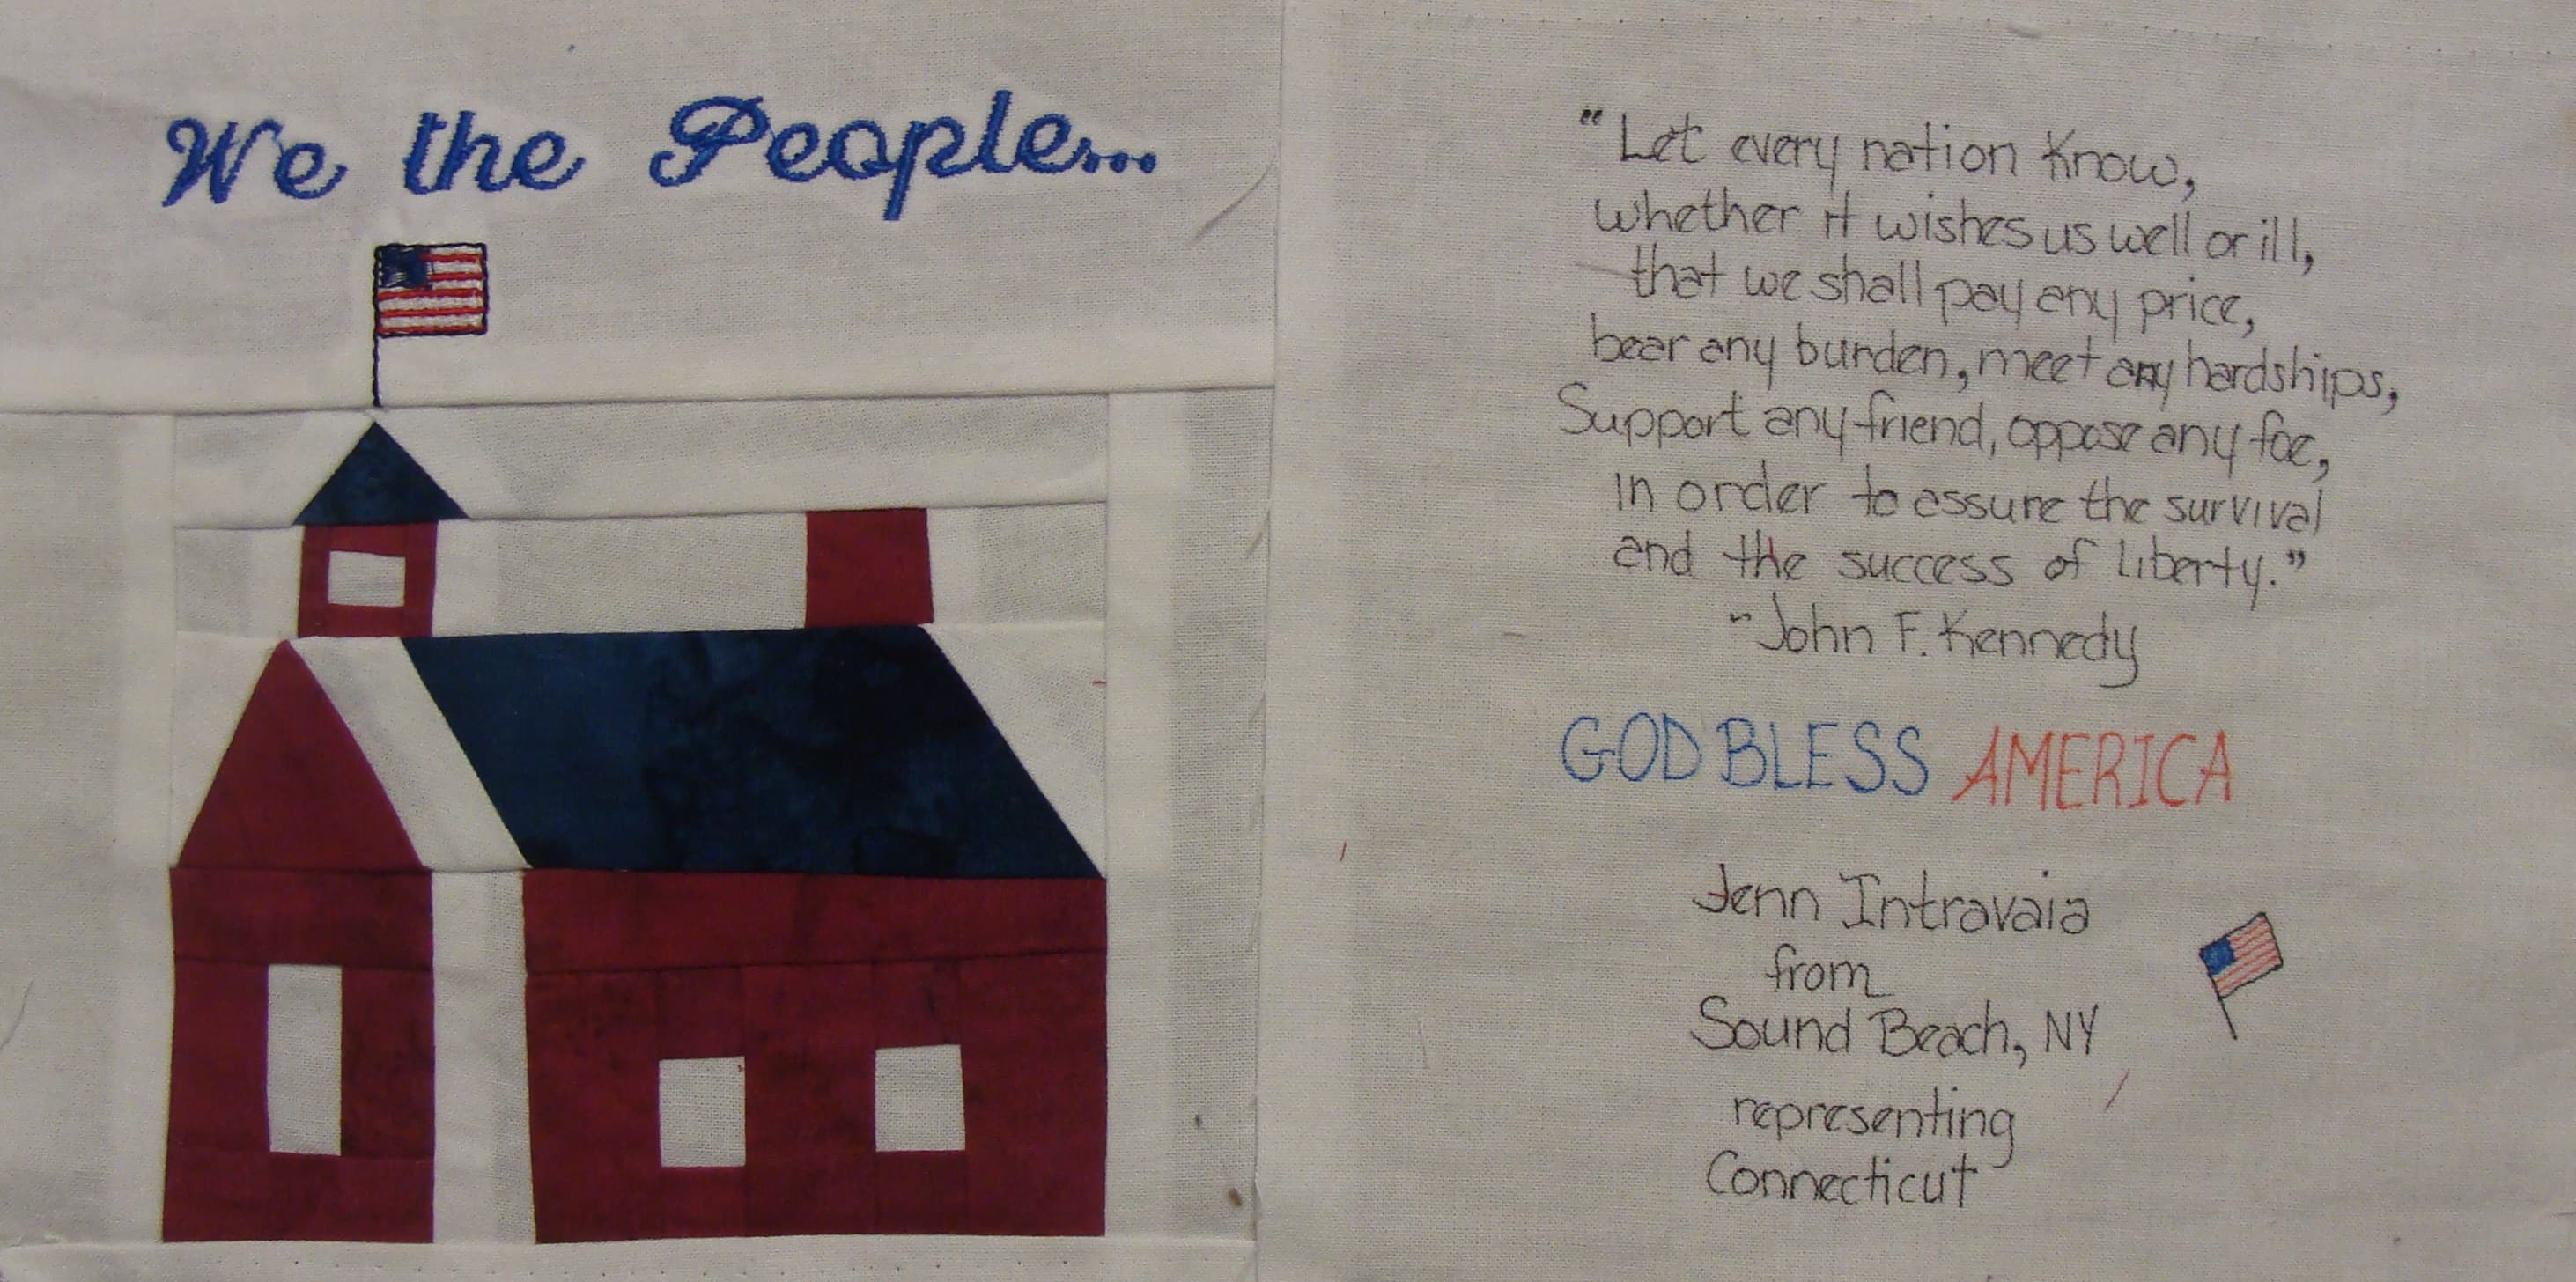 We the People...
"Let every nation Know,
whether it wishes us well or ill,
that we shall pay any price,
bear any burden, meet any hardships,
Support any friend, oppose any foe,
in order to assure the survival
and the success of liberty."
~John F. Kennedy
GOD BLESS AMERICA
Jenn Intravaia
from
Sound Beach, NY
representing
Connecticut